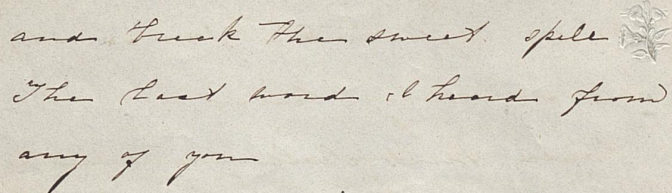 and break the sweet spell
The last word I heard from
any of you